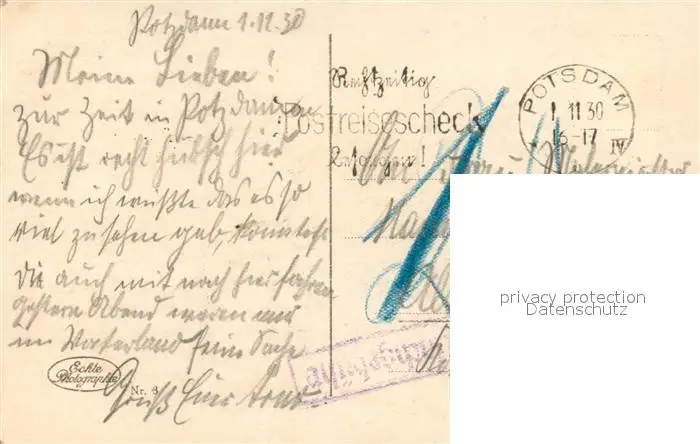 Potzdamm 1.11.30
Meine Lieben!
zur Zeit in Potzdamm
Es ist recht hübsch hier
wenn ich wüßte das es so
viel zu sehen gab, konntest
Du auch mit nach hier fahren
gestern Abend waren wir
im Vaterland feine Sache
Gruß Euer
Echte
Photographie
Nr. 3
Rechtzeitig
Postreisescheck
besorgen!
POTSDAM
1 11 30
16-17
IV
An Frau
privacy protection
Datenschutz